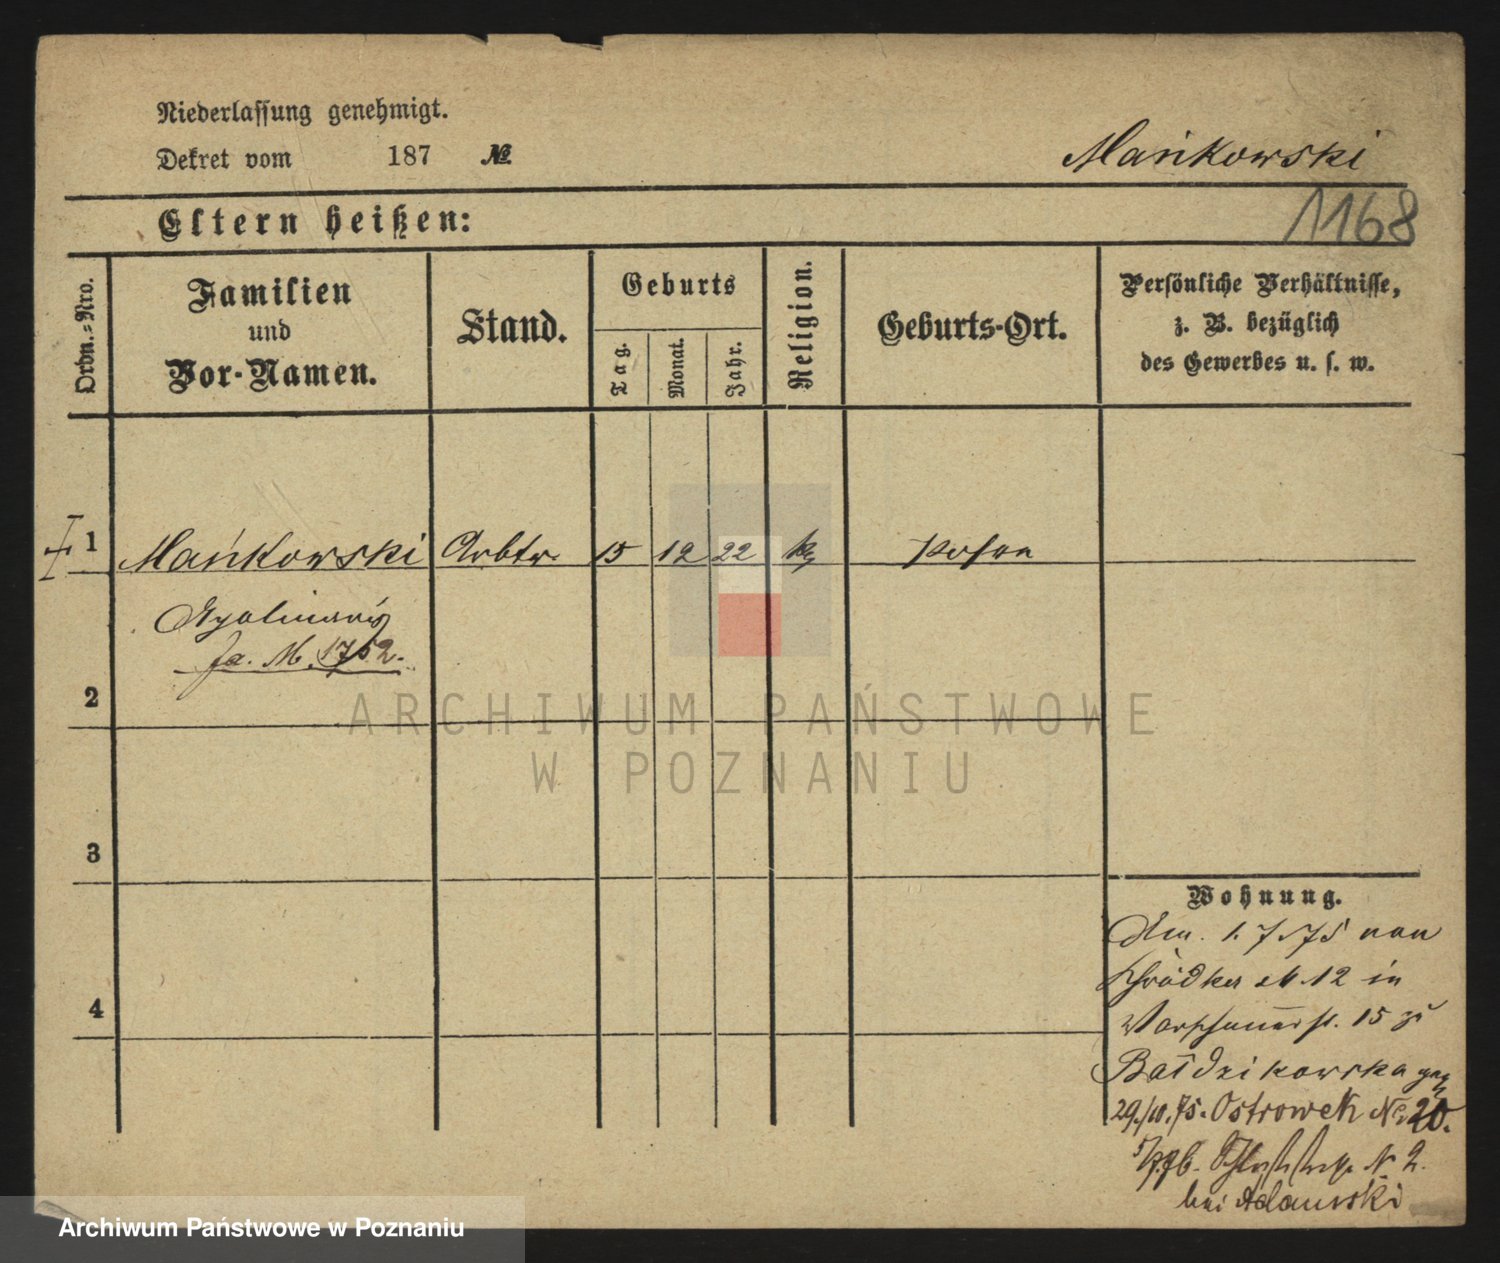 Niederlassung genehmigt.
Dekret vom 187 №
Mańkowski
1168
Eltern heißen:
Ordn.-Nro.
Familien
und
Vor-Namen.
Stand.
Geburts
Tag.
Monat.
Jahr.
Religion.
Geburts-Ort.
Persönliche Verhältnisse,
z. B. bezüglich
des Gewerbes u. s. w.
1 Mańkowski Arbtr. 15 12 22 k Posen
Apolinary
fr. M. 1752.
2
3
4
Wohnung.
1.7.75 von
Schrodka M. 12 in
Warschauerst. 15 zu
Bałdzikowska gez
29./10.75. Ostrowek No 20.
N. 2.
bei Adamski
ARCHIWUM PAŃSTWOWE
W POZNANIU
Archiwum Państwowe w Poznaniu